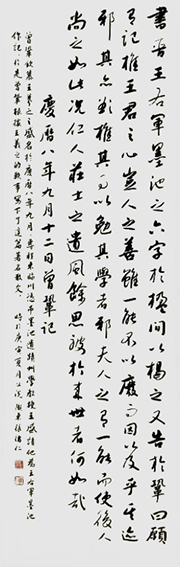 書晉王右軍墨池之六字於楹間以揭之又告於鞏曰願
有記推王君之心豈人之善雖一能不以廢而因以及乎其迹
邪其亦欲推其事以勉其學者邪夫人之有一能而使後人
尚之如此況仁人莊士之遺風餘思被於來世者何如哉
慶曆八年九月十二日曾鞏記
曾鞏欽慕王羲之之盛名於慶曆八年九月專程來臨川憑吊墨池遺蹟州學教授王盛請他為王右軍墨池
作記於是曾鞏根據王羲之的軼事寫下了這篇著名散文 時於庚寅夏月